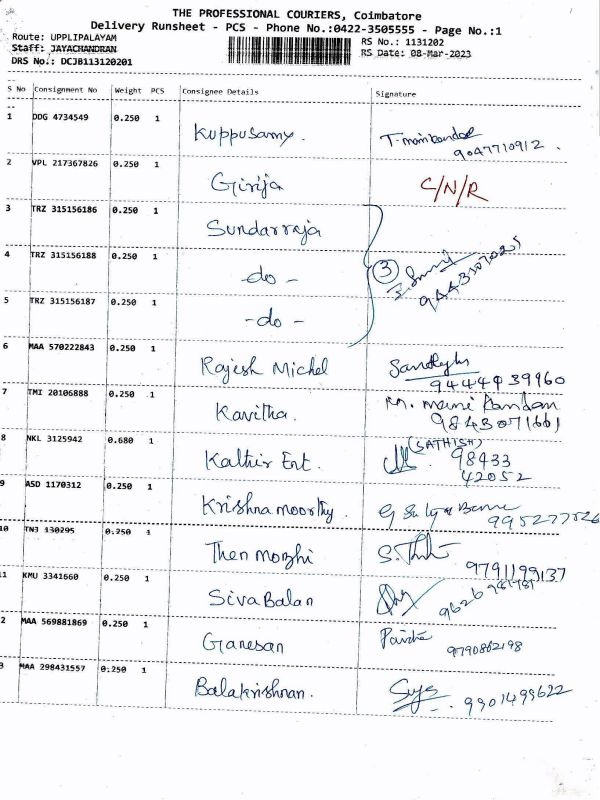 THE PROFESSIONAL COURIERS, Coimbatore
Delivery Runsheet - PCS - Phone No.:0422-3505555 - Page No.:1
Route: UPPLIPALAYAM RS No.: 1131202
Staff: JAYACHANDRAN RS Date: 08-Mar-2023
DRS No.: DCJB113120201
S No Consignment No Weight PCS Consignee Details Signature
1 DDG 4734549 0.250 1 Kuppusamy. 9047710912.
2 VPL 217367826 0.250 1 Girija C/N/R
3 TRZ 315156186 0.250 1 Sundarraja
4 TRZ 315156188 0.250 1 -do- 3
5 TRZ 315156187 0.250 1 -do-
6 MAA 570222843 0.250 1 Rajesh Michel
94444 39960
7 TMI 20106888 0.250 1 Kavitha. M. mani kandan
9843071661
8 NKL 3125942 0.680 1 Kathir Ent. (SATHISH) 98433
42052
9 ASD 1170312 0.250 1 Krishna moorthy.
10 TNJ 130295 0.250 1 Then mozhi
9791199137
11 KMU 3341660 0.250 1 Siva Balan
2 MAA 569881869 0.250 1 Ganesan 9790862198
3 MAA 298431557 0.250 1 Balakrishnan. 9901499622